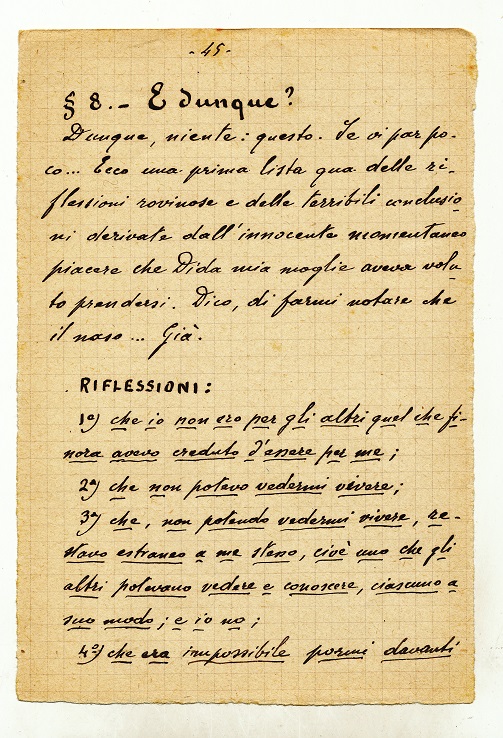 - 45 -
§ 8. - E dunque?
Dunque, niente: questo. Se vi par po-
co... Ecco una prima lista qua delle ri-
flessioni rovinose e delle terribili conclusio
ni derivate dall'innocente momentaneo
piacere che Dida mia moglie aveva volu
to prendersi. Dico, di farmi notare che
il naso... Già.
RIFLESSIONI:
1ª) che io non ero per gli altri quel che fi-
nora avevo creduto d'essere per me;
2ª) che non potevo vedermi vivere;
3ª) che, non potendo vedermi vivere, re-
stavo estraneo a me stesso, cioè uno che gli
altri potevano vedere e conoscere, ciascuno a
suo modo; e io no;
4ª) che era impossibile pormi davanti